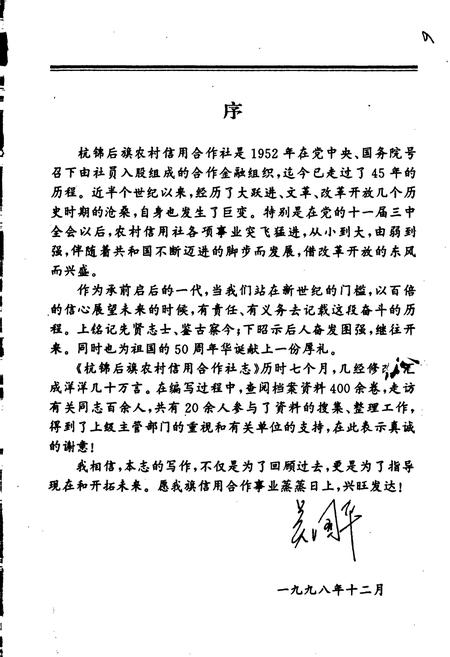 序
杭锦后旗农村信用合作社是1952年在党中央、国务院号
召下由社员入股组成的合作金融组织，迄今已走过了45年的
历程。近半个世纪以来，经历了大跃进、文革、改革开放几个历
史时期的沧桑，自身也发生了巨变。特别是在党的十一届三中
全会以后，农村信用社各项事业突飞猛进，从小到大，由弱到
强，伴随着共和国不断迈进的脚步而发展，借改革开放的东风
而兴盛。
作为承前启后的一代，当我们站在新世纪的门槛，以百倍
的信心展望未来的时候，有责任、有义务去记载这段奋斗的历
程。上铭记先贤志士、鉴古察今；下昭示后人奋发图强，继往开
来。同时也为祖国的50周年华诞献上一份厚礼。
《杭锦后旗农村信用合作社志》历时七个月，几经修
成洋洋几十万言。在编写过程中，查阅档案资料400余卷，走访
有关同志百余人，共有20余人参与了资料的搜集、整理工作，
得到了上级主管部门的重视和有关单位的支持，在此表示真诚
的谢意！
我相信，本志的写作，不仅是为了回顾过去，更是为了指导
现在和开拓未来。愿我旗信用合作事业蒸蒸日上，兴旺发达！
一九九八年十二月